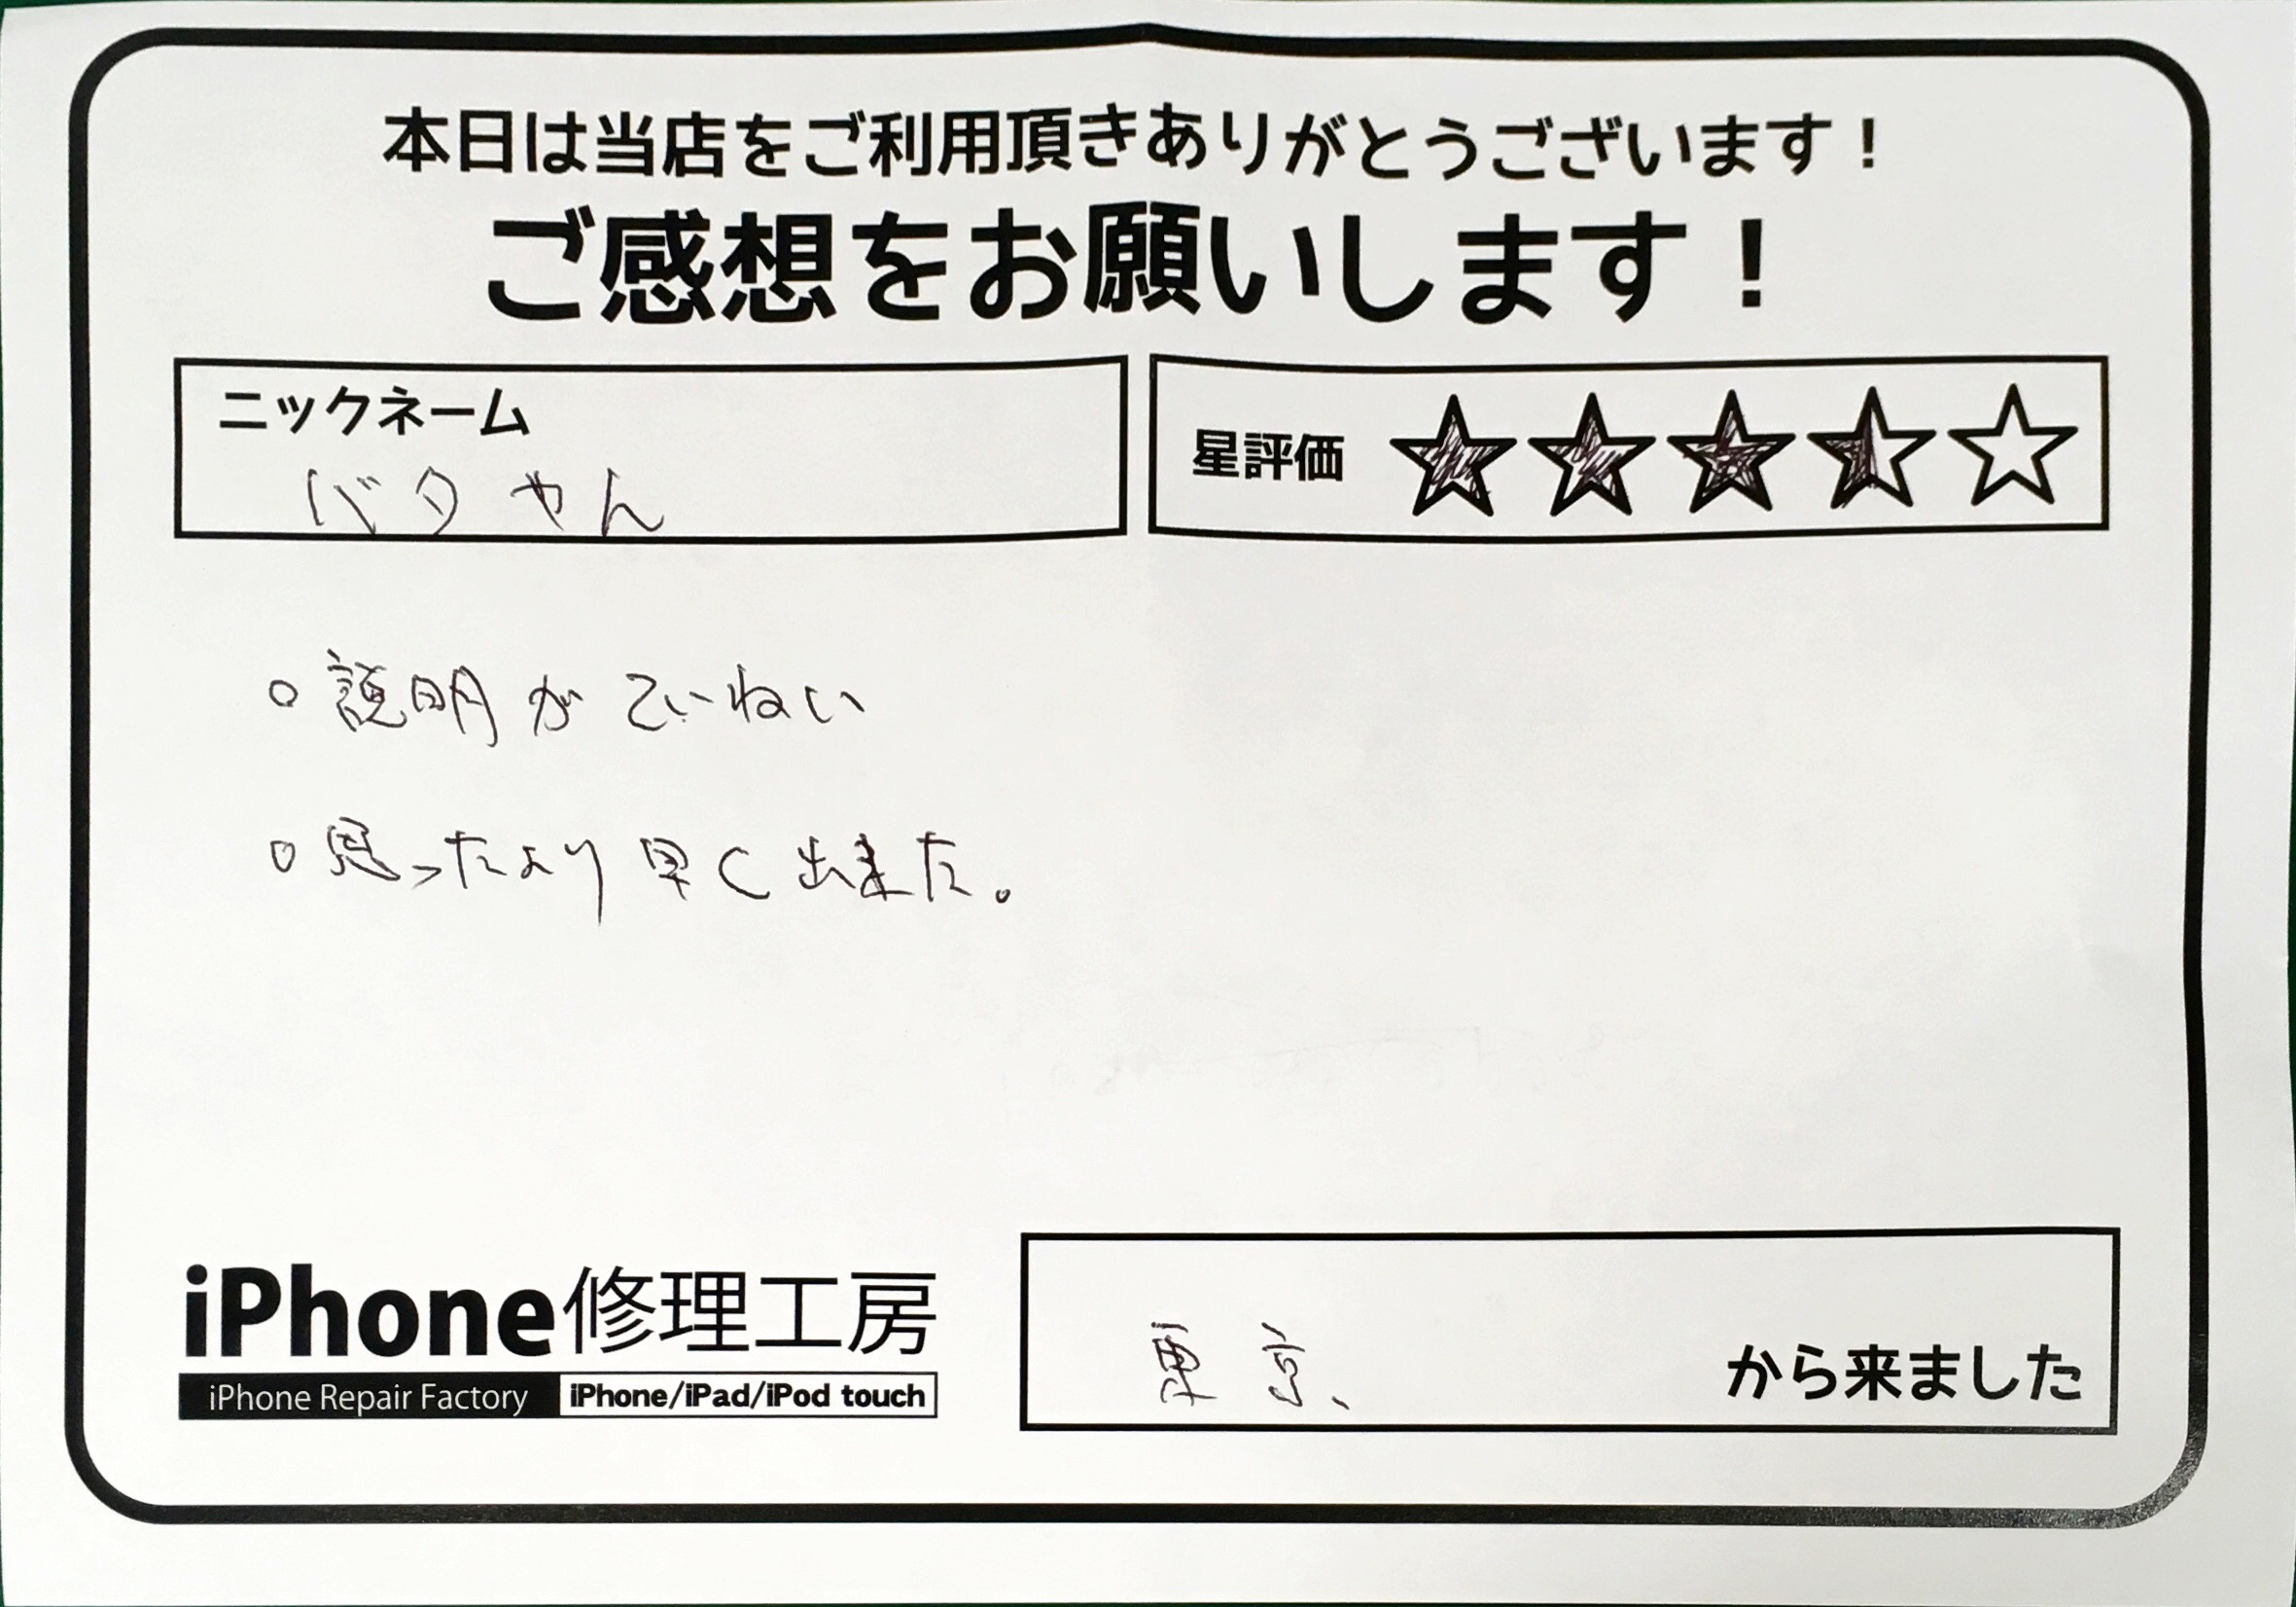 本日は当店をご利用頂きありがとうございます！
ご感想をお願いします！
ニックネーム
バタやん
星評価 ★★★⯪☆
○ 説明がていねい
○ 思ったより早く出来た。
iPhone修理工房
iPhone Repair Factory iPhone/iPad/iPod touch
東京、 から来ました